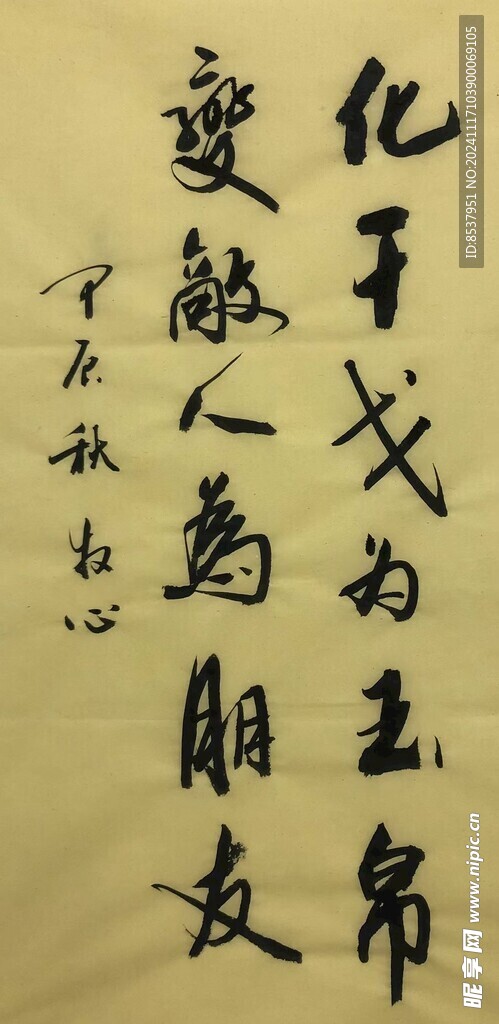 化干戈为玉帛
變敵人為朋友
甲辰秋 牧心
ID:8537951 NO:20241117103900069105
昵享网 www.nipic.cn